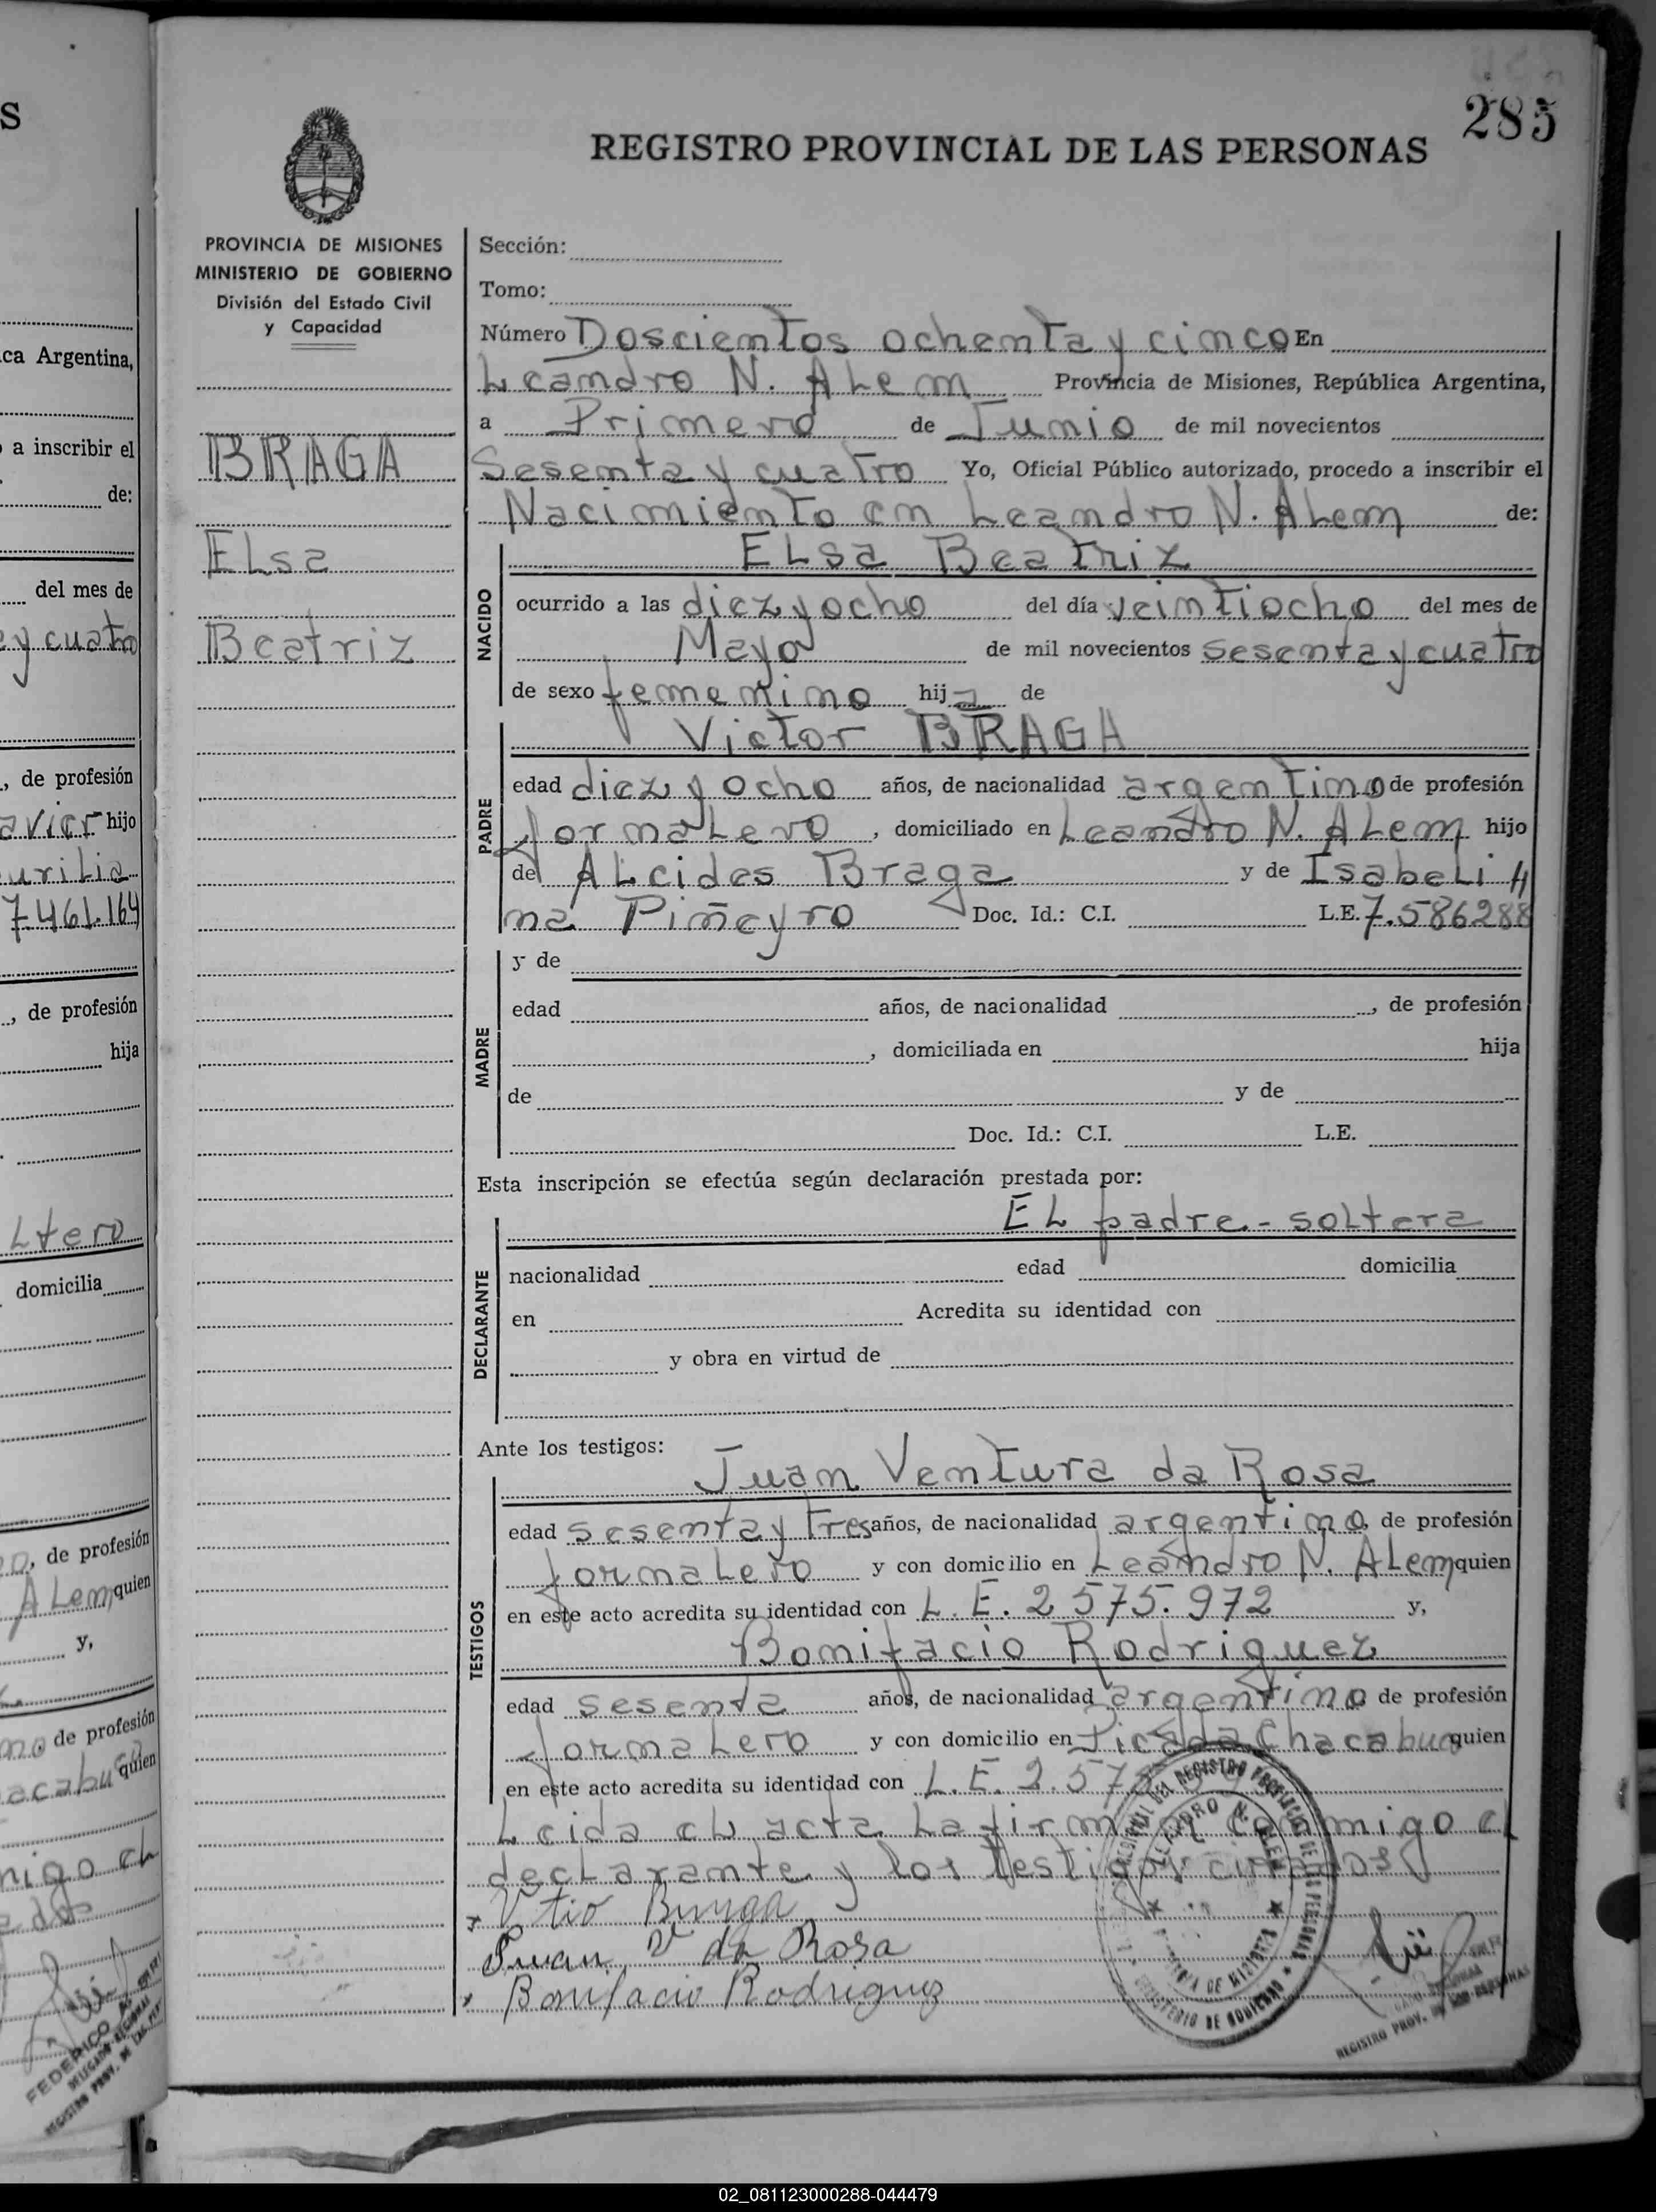 285
REGISTRO PROVINCIAL DE LAS PERSONAS
PROVINCIA DE MISIONES
MINISTERIO DE GOBIERNO
División del Estado Civil
y Capacidad
BRAGA
Elsa
Beatriz
Sección:
Tomo:
Número Doscientos ochenta y cinco En
Leandro N. Alem Provincia de Misiones, República Argentina,
a Primero de Junio de mil novecientos
Sesenta y cuatro Yo, Oficial Público autorizado, procedo a inscribir el
Nacimiento en Leandro N. Alem de:
NACIDO
Elsa Beatriz
ocurrido a las diez y ocho del día veintiocho del mes de
Mayo de mil novecientos sesenta y cuatro
de sexo femenino hija de
PADRE
Victor BRAGA
edad diez y ocho años, de nacionalidad argentino de profesión
jornalero, domiciliado en Leandro N. Alem hijo
de Alcides Braga y de Isabeli
na Piñeyro Doc. Id.: C.I. L.E. 7.586288
MADRE
y de
edad años, de nacionalidad , de profesión
, domiciliada en hija
de y de
Doc. Id.: C.I. L.E.
Esta inscripción se efectúa según declaración prestada por:
DECLARANTE
El padre.- soltera
nacionalidad edad domicilia
en Acredita su identidad con
y obra en virtud de
Ante los testigos:
TESTIGOS
Juan Ventura da Rosa
edad sesenta y tres años, de nacionalidad argentino, de profesión
jornalero y con domicilio en Leandro N. Alem quien
en este acto acredita su identidad con L.E. 2575.972 y,
Bonifacio Rodriguez
edad sesenta años, de nacionalidad argentino de profesión
jornalero y con domicilio en Picada Chacabuco quien
en este acto acredita su identidad con L.E. 2.575
Leida el acta la firman conmigo el
declarante y los testigos citados
Juan V da Rosa
Bonifacio Rodriguez
REGISTRO PROV. DE LAS PERSONAS
S
ca Argentina,
a inscribir el
de:
del mes de
y cuatro
, de profesión
hijo
7461.164
, de profesión
hija
ltero
domicilia
, de profesión
Alem quien
y,
de profesión
quien
FEDERICO
02_081123000288-044479